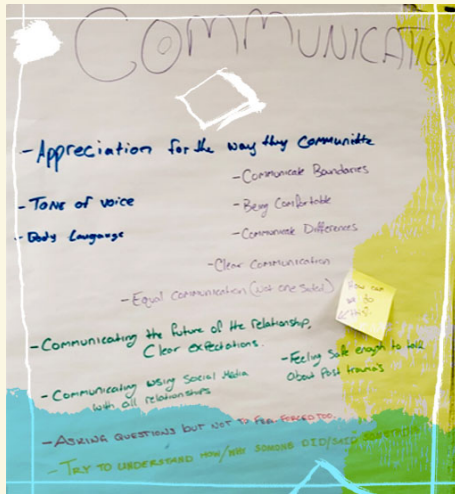 COMMUNICATION
- Appreciation for the way they Communitte
- Communicate Boundaries
- Tone of voice
- Being Comfortable
- Body Laugauge
- Communicate Differences
- Clear Communication
- Equal Communication (Not one sided)
How can
we do
- Communicating the future of the relationship,
Clear expectations.
- Feeling Safe enough to talk
about Past traumas
- Communicating using Social Media
with all relationships
- ASKING QUESTIONS BUT NOT TO FEEL FORCED TOO.
- TRY TO UNDERSTAND HOW/WHY SOMONE DID/SAID SOMETHING